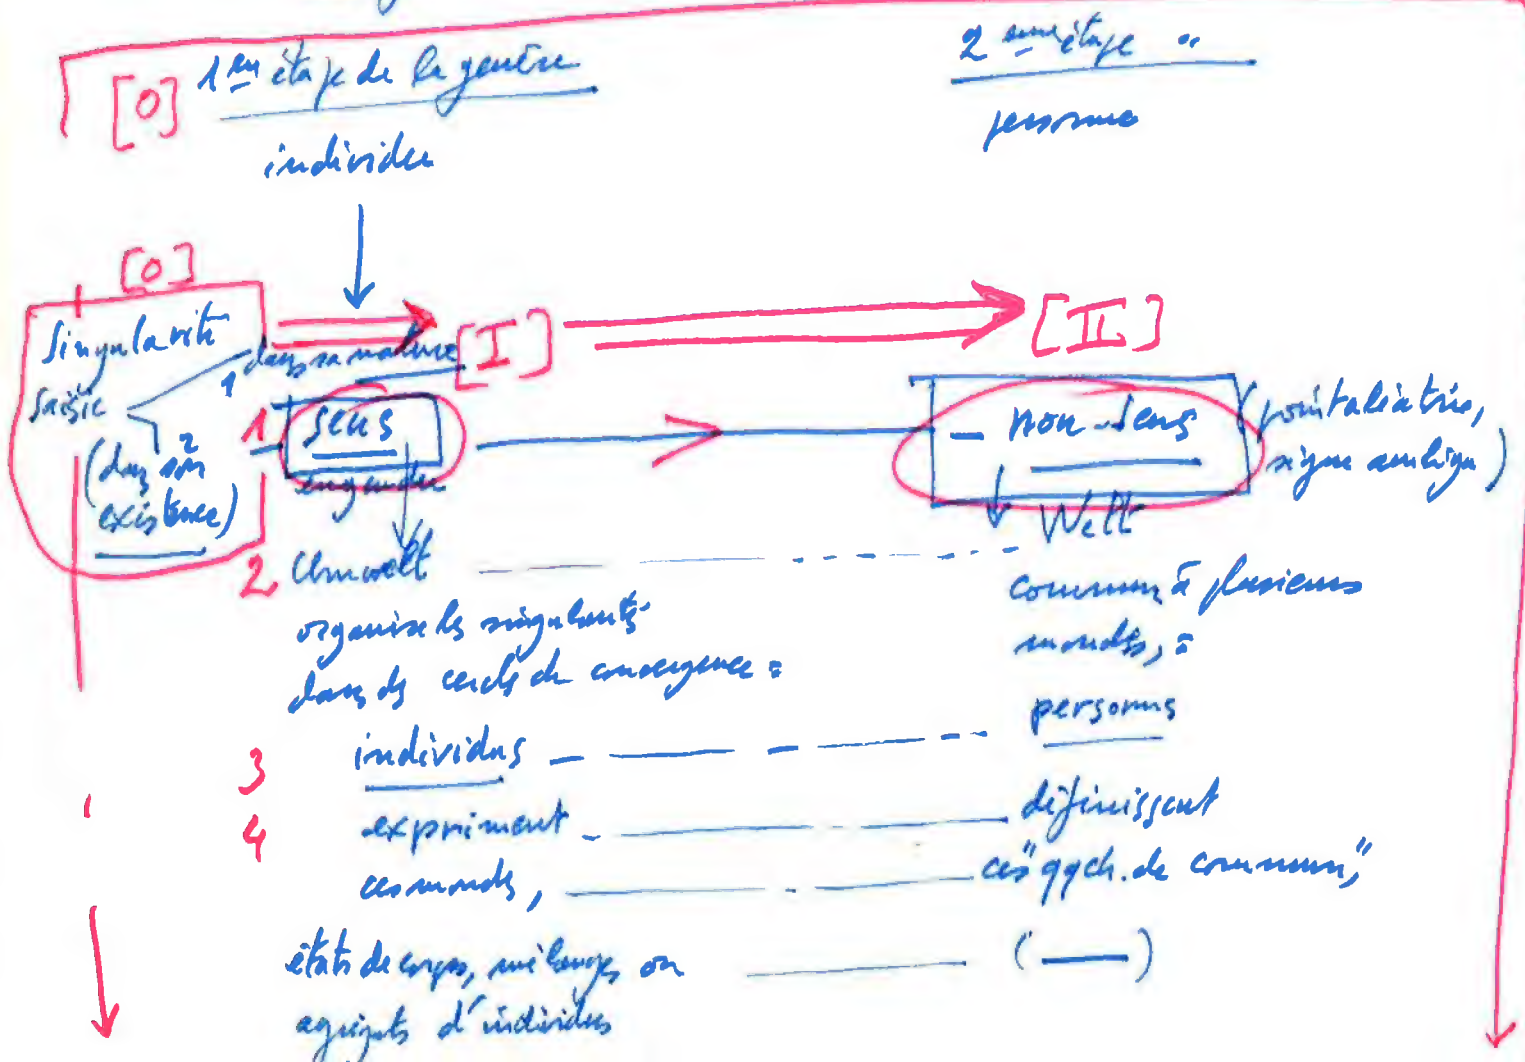 [0] 1er étape de la genèse
2ème étape "
individu
personne
[0]
Singularité
saisie
1 dans sa nature
2
(dans son
existence)
[I]
[II]
1 sens
- non-sens
(point aléatoire,
signe ambigu)
engendre
2 Umwelt
Welt
organise les singularités
dans des cercles de convergence =
commun à plusieurs
mondes, =
3 individus
personnes
4 expriment
définissent
ces mondes,
ces "qqch. de commun",
états de corps, mélanges ou
(—)
agrégats d'individus